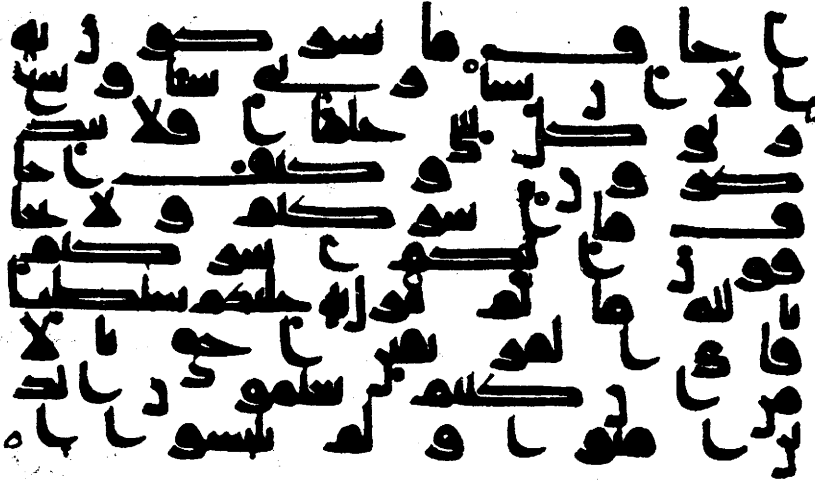 اخاف ما تشركون به
الا ان يشا ربي شيا وس
ع ربي كل شي علما افلا تت
ذكرون وكيف اخا
ف ما اشركتم ولا تخا
فون انكم اشركتم
بالله ما لم ينزل به عليكم سلطنا
فاي الفريقين احق بالا
من ان كنتم تعلمون الذ
ين امنوا ولم يلبسوا ا يـ